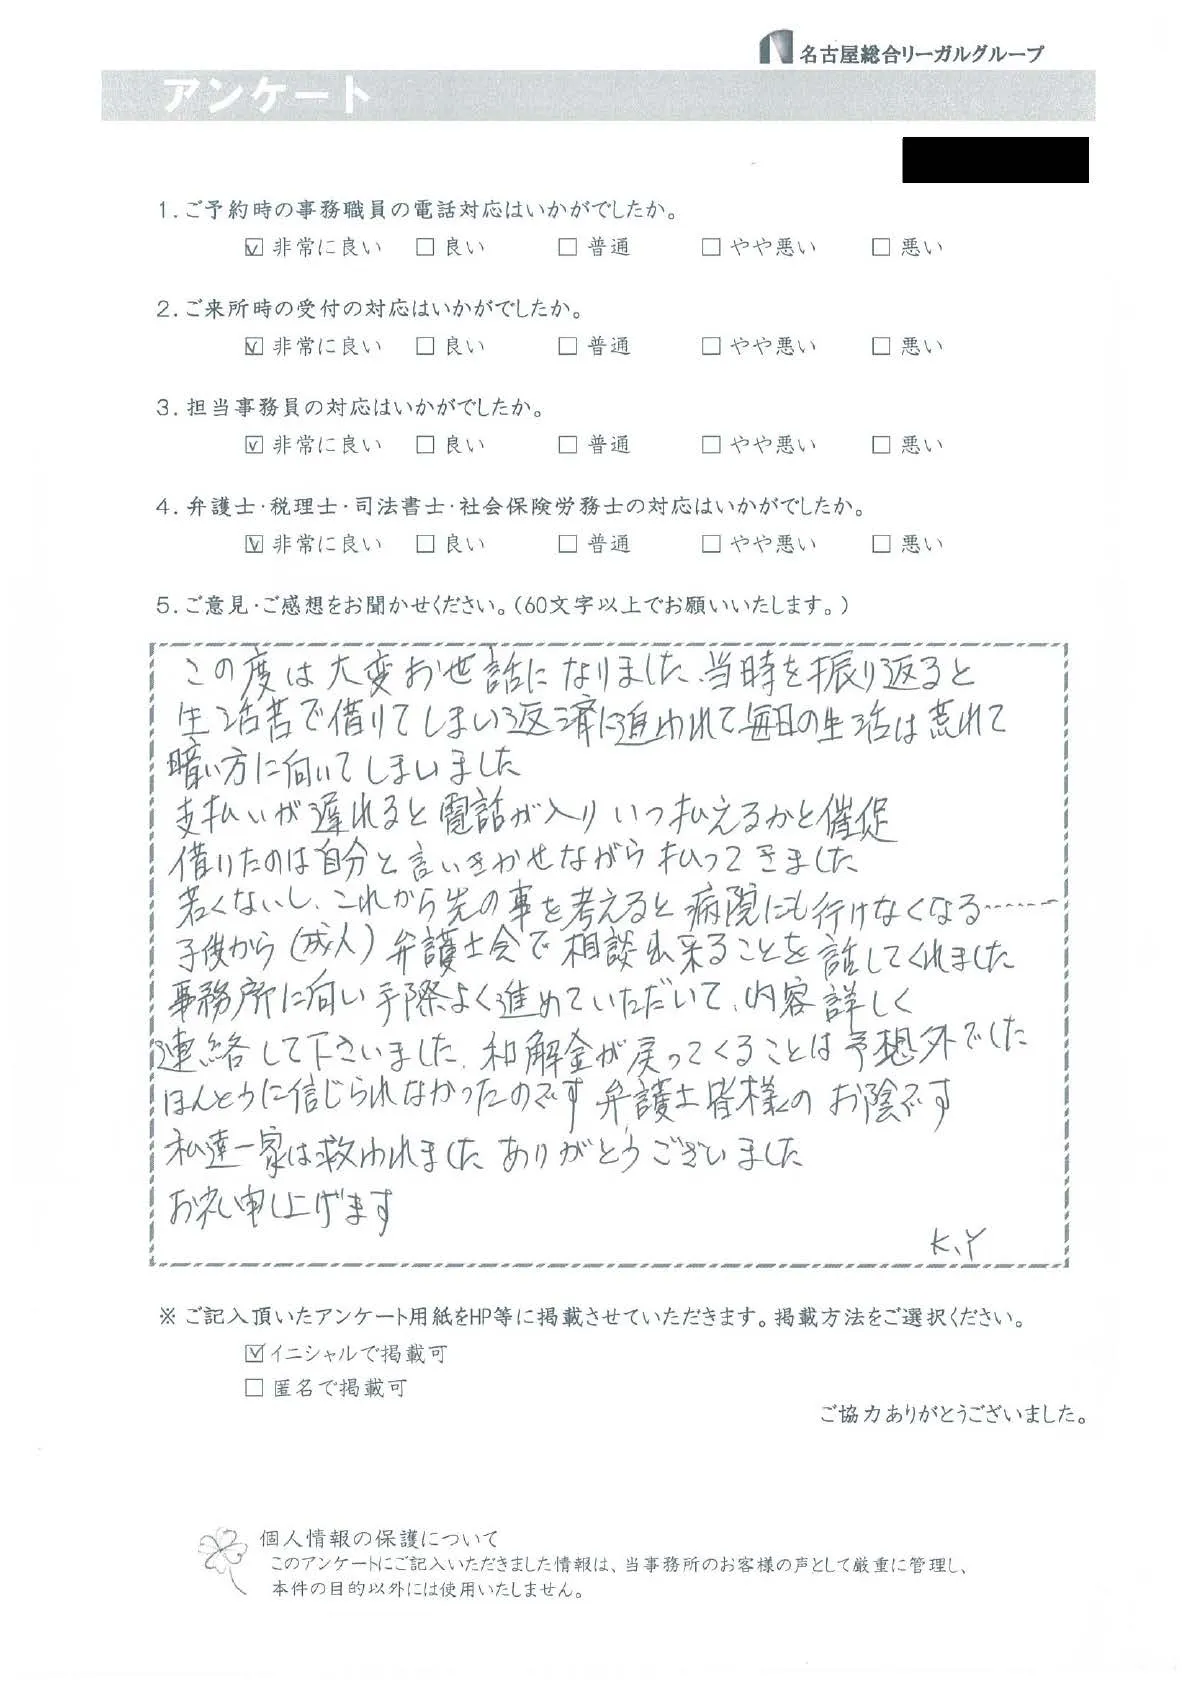 名古屋総合リーガルグループ
アンケート
1.ご予約時の事務職員の電話対応はいかがでしたか。
☑ 非常に良い □ 良い □ 普通 □ やや悪い □ 悪い
2.ご来所時の受付の対応はいかがでしたか。
☑ 非常に良い □ 良い □ 普通 □ やや悪い □ 悪い
3.担当事務員の対応はいかがでしたか。
☑ 非常に良い □ 良い □ 普通 □ やや悪い □ 悪い
4.弁護士・税理士・司法書士・社会保険労務士の対応はいかがでしたか。
☑ 非常に良い □ 良い □ 普通 □ やや悪い □ 悪い
5.ご意見・ご感想をお聞かせください。(60文字以上でお願いいたします。)
この度は大変お世話になりました、当時を振り返ると
生活苦で借りてしまい返済に追われて毎日の生活は荒れて
暗い方に向いてしまいました
支払いが遅れると電話が入りいつ払えるかと催促
借りたのは自分と言いきかせながら払ってきました
若くないし、これから先の事を考えると病院にも行けなくなる……
子供から(成人)弁護士会で相談出来ることを話してくれました
事務所に向い手際よく進めていただいて、内容詳しく
連絡して下さいました、和解金が戻ってくることは予想外でした
ほんとうに信じられなかったのです 弁護士皆様のお陰です
私達一家は救われました ありがとうございました
お礼申し上げます
K、Y
※ご記入頂いたアンケート用紙をHP等に掲載させていただきます。掲載方法をご選択ください。
☑ イニシャルで掲載可
□ 匿名で掲載可
ご協力ありがとうございました。
個人情報の保護について
このアンケートにご記入いただきました情報は、当事務所のお客様の声として厳重に管理し、
本件の目的以外には使用いたしません。